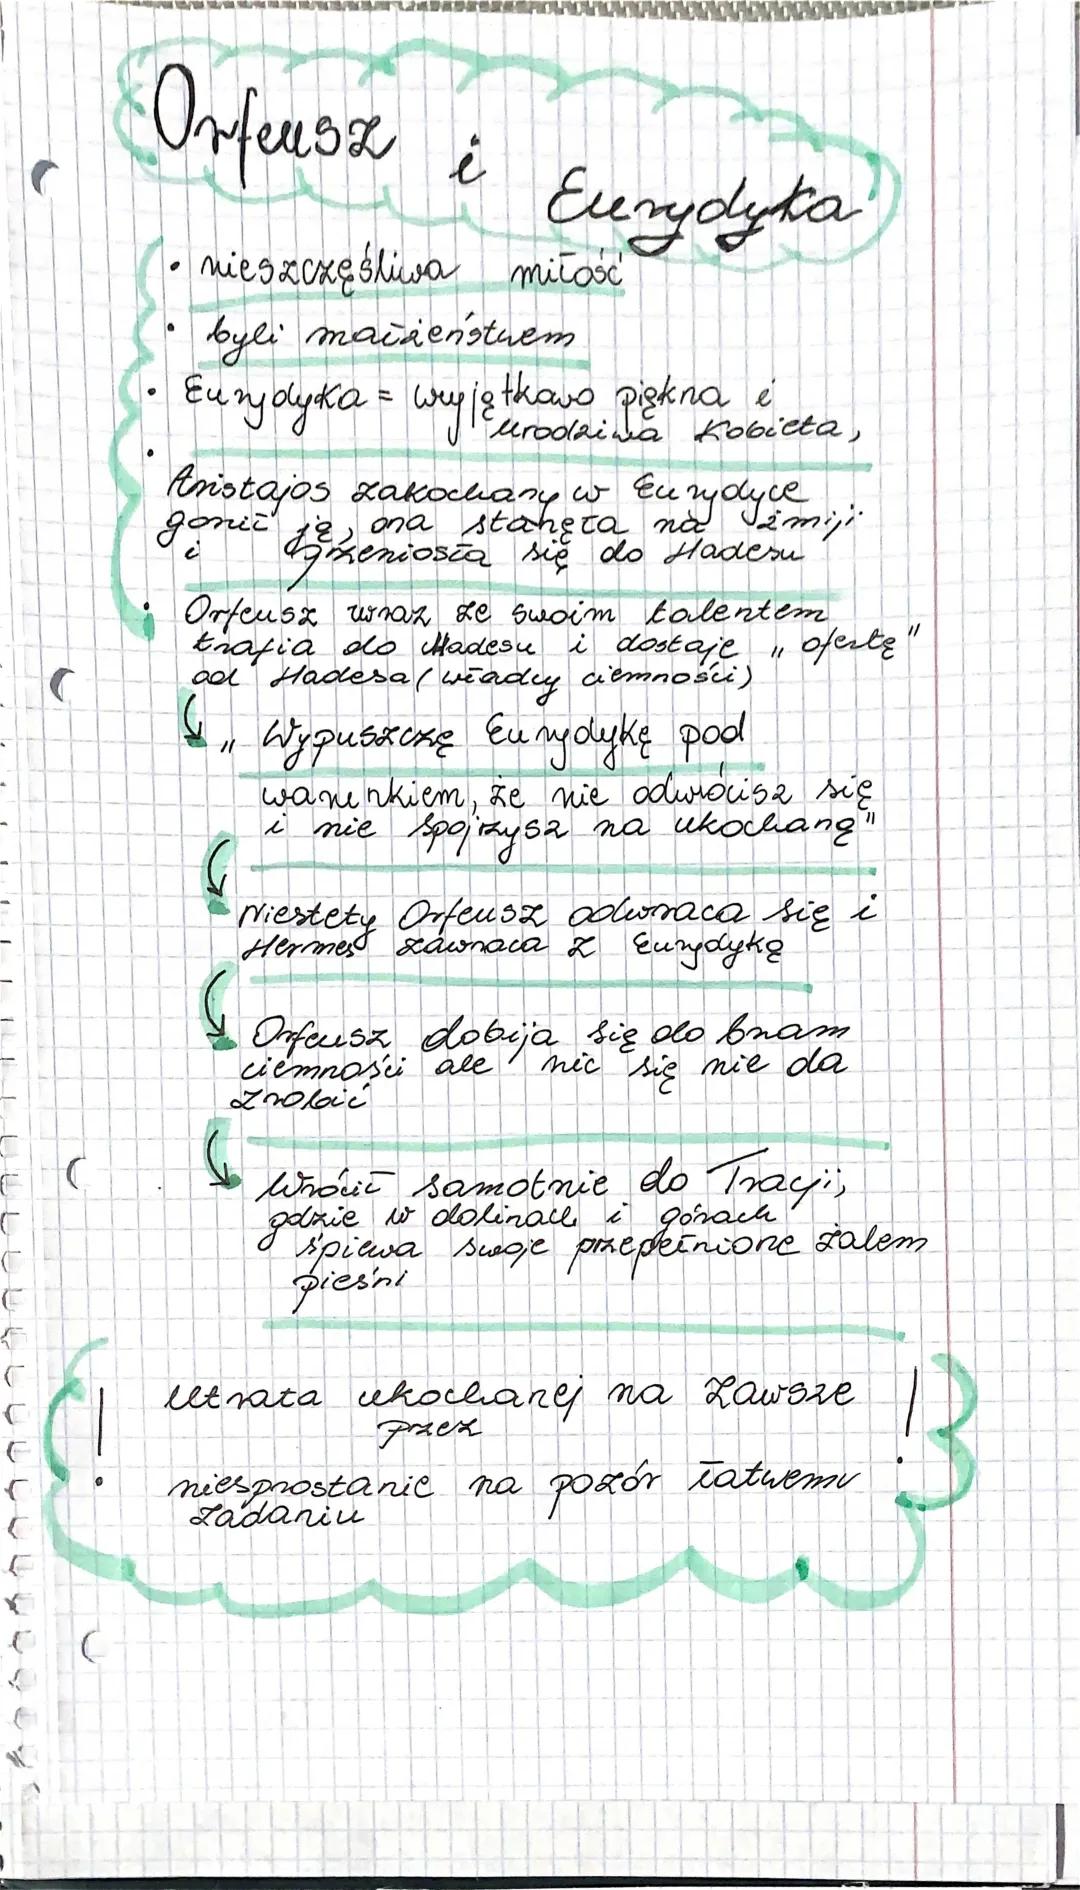 Orfeusz i Eurydyka
• nieszczęśliwa miłość
• byli małżeństwem
• Eurydyka = wyjątkowo piękna i
urodziwa kobieta,
• Aristajos zakochany w Eurydyce
gonił ją, ona stanęła na żmiji
i przeniosła się do Hadesu
• Orfeusz wraz ze swoim talentem
trafia do Hadesu i dostaje „ofertę"
od Hadesa (władcy ciemności)
↳ „Wypuszczę Eurydykę pod
warunkiem, że nie odwrócisz się
i nie spojrzysz na ukochaną"
↳ Niestety Orfeusz odwraca się i
Hermes zawraca z Eurydyką
↳ Orfeusz dobija się do bram
ciemności ale nic się nie da
zrobić
↳ Wrócił samotnie do Tracji,
gdzie w dolinach i górach
śpiewa swoje przepełnione żalem
pieśni
! Utrata ukochanej na zawsze !
przez
niesprostanie na pozór łatwemu
zadaniu